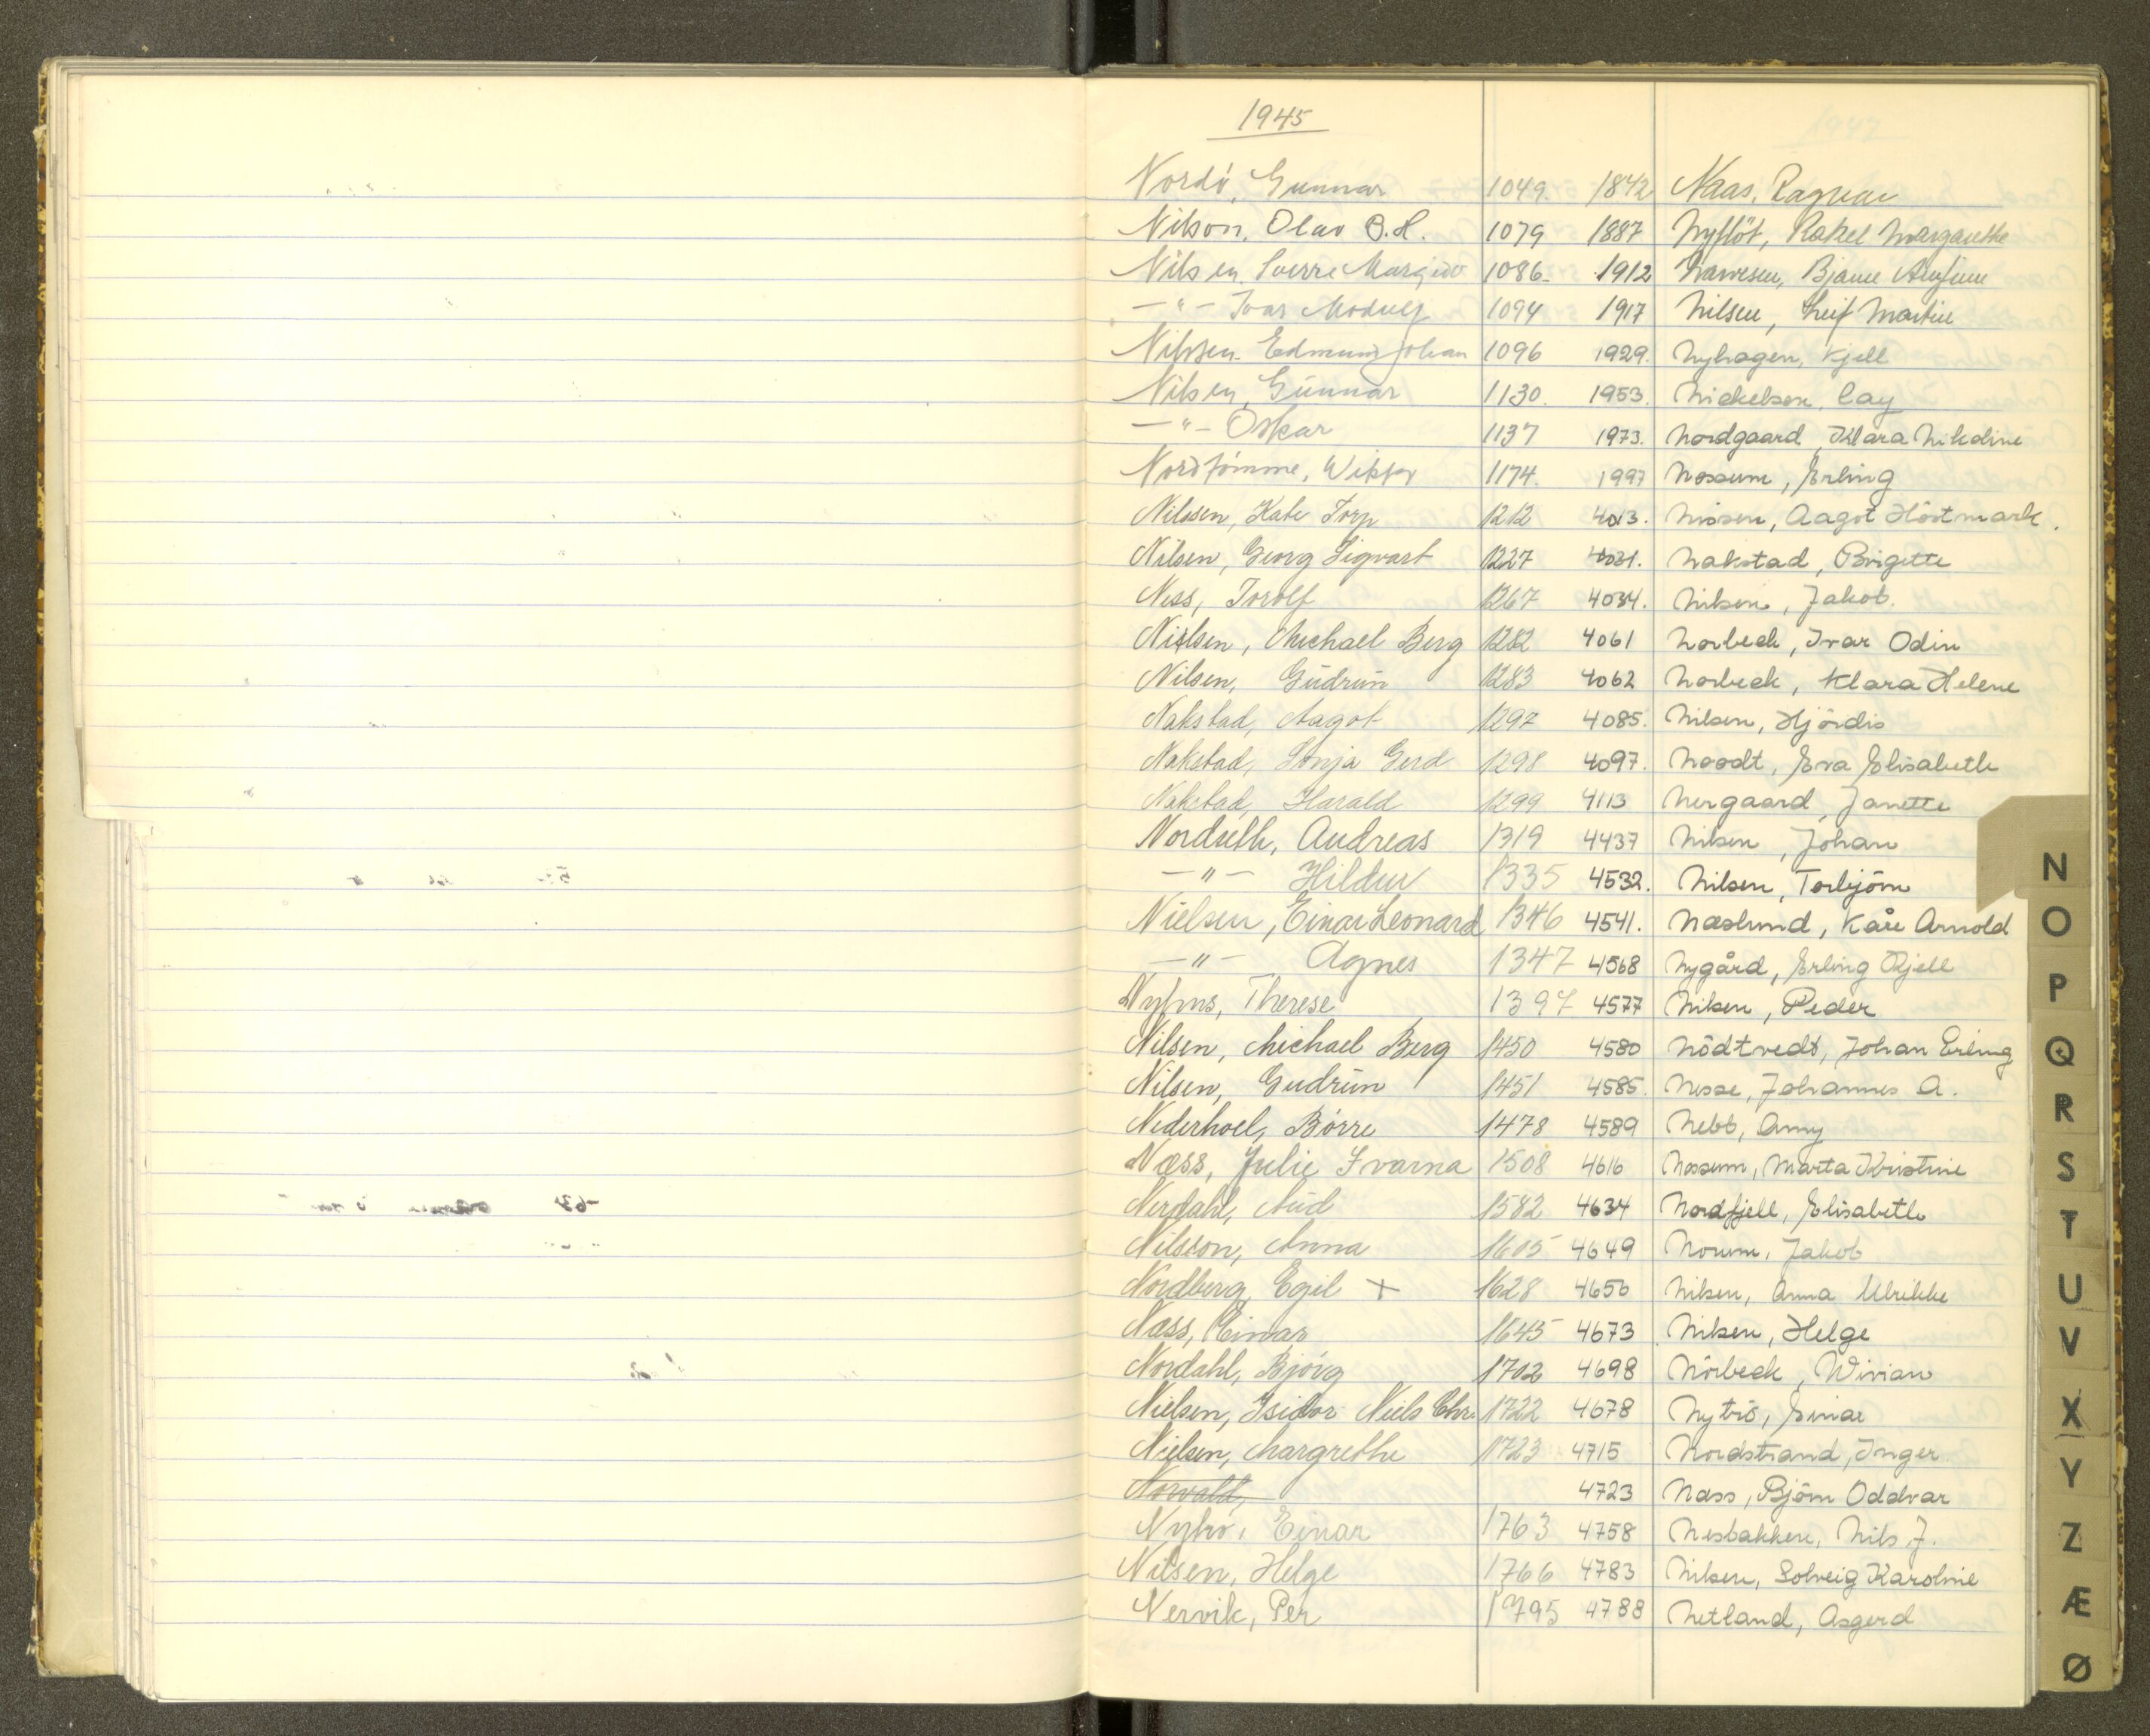 1945
Nordö, Gunnar 1049. 1842 Naas, Ragnar
Nilson, Olav B.H. 1079 1887 Nyflöt, Rakel Margarethe
Nilsen, Sverre 1086 1912 Bjarne
—"— Ivar Modulf 1094 1917 Nilsen, Leif Martin
Nilssen, Edmund Johan 1096 1929. Nyhagen, Kjell
Nilsen, Gunnar 1130. 1953. Nickelsen, Cay
—"— Oskar 1137 1973. Nordgaard, Klara Nikoline
1174. 1997 Nossum, Erling
Nilssen, Kate Torp 1212 4013. Nissen, Aagot Höstmark.
Nilsen, Georg Sigvart 1227 4031. Nakstad, Brigette
Ness, Torolf 1267 4034. Nilsen, Jakob.
Nielsen, Michael Berg 1282 4061 Norbeck, Ivar Odin
Nilsen, Gudrun 1283 4062 Norbeck, Klara Helene
Nakstad, Aagot 1297 4085. Nilsen, Hjördis
Nakstad, Sonja Gerd 1298 4097. Noodt, Eva Elisabeth
Nakstad, Harald 1299 4113 Nergaard, Janette
Norduth, Andreas 1319 4437 Nilsen, Johan
—"— Hildur 1335 4532. Nilsen, Torbjörn
Nielsen, Einar Leonard 1346 4541. Næslund, Kåre Arnold
—"— Agnes 1347 4568 Nygård, Erling Kjell
Therese 1397 4577 Nilsen, Peder
Nilsen, Michael Berg 1450 4580 Nödtvedt, Johan Erling
Nilsen, Gudrun 1451 4585. Nesse, Johannes A.
Nederhoel, Börre 1478 4589 Nebb, Amy
Næss, Julie Ivarna 1508 4616 Nossum, Marta Kristine
Nerdahl, Aud 1582 4634 Nordfjell, Elisabeth
Nilsson, Anna 1605 4649 Norum, Jakob
Nordberg, Egil + 1628 4656 Nilsen, Anna Ulrikke
Næss, Einar 1645 4673 Nilsen, Helge
Nordahl, Bjórg 1702 4698 Nörbeck, Wivian
Nielsen, Isidor Niels Chr. 1722 4678 Nytrö, Einar
Nielsen, Margrethe 1723 4715 Nordstrand, Inger
Norvald, 4723 Næss, Björn Oddvar
Nytrö, Einar 1763 4758 Nesbakken, Nils J.
Nilsen, Helge 1766 4783 Nilsen, Solveig Karoline
Nervik, Per 1795 4788 Netland, Asgerd
N
O
P
Q
R
S
T
U
V
X
Y
Z
Æ
Ø